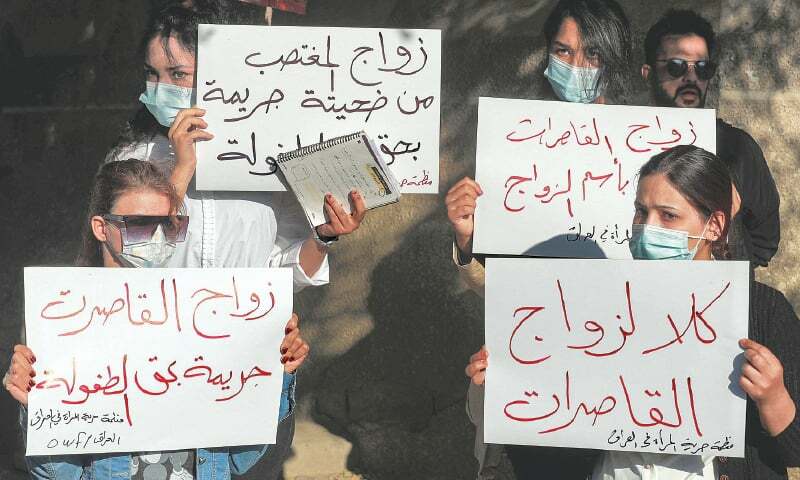 زواج المغتصب
من ضحيتة جريمة
بحق الطفولة
منظمة
زواج القاصرات
بأسم الزواج
المرأة في العراق
زواج القاصرت
جريمة بحق الطفولة
منظمة حرية المرأة في
العراق / owf
كلا لزواج
القاصرات
منظمة حرية المرأة في العراق